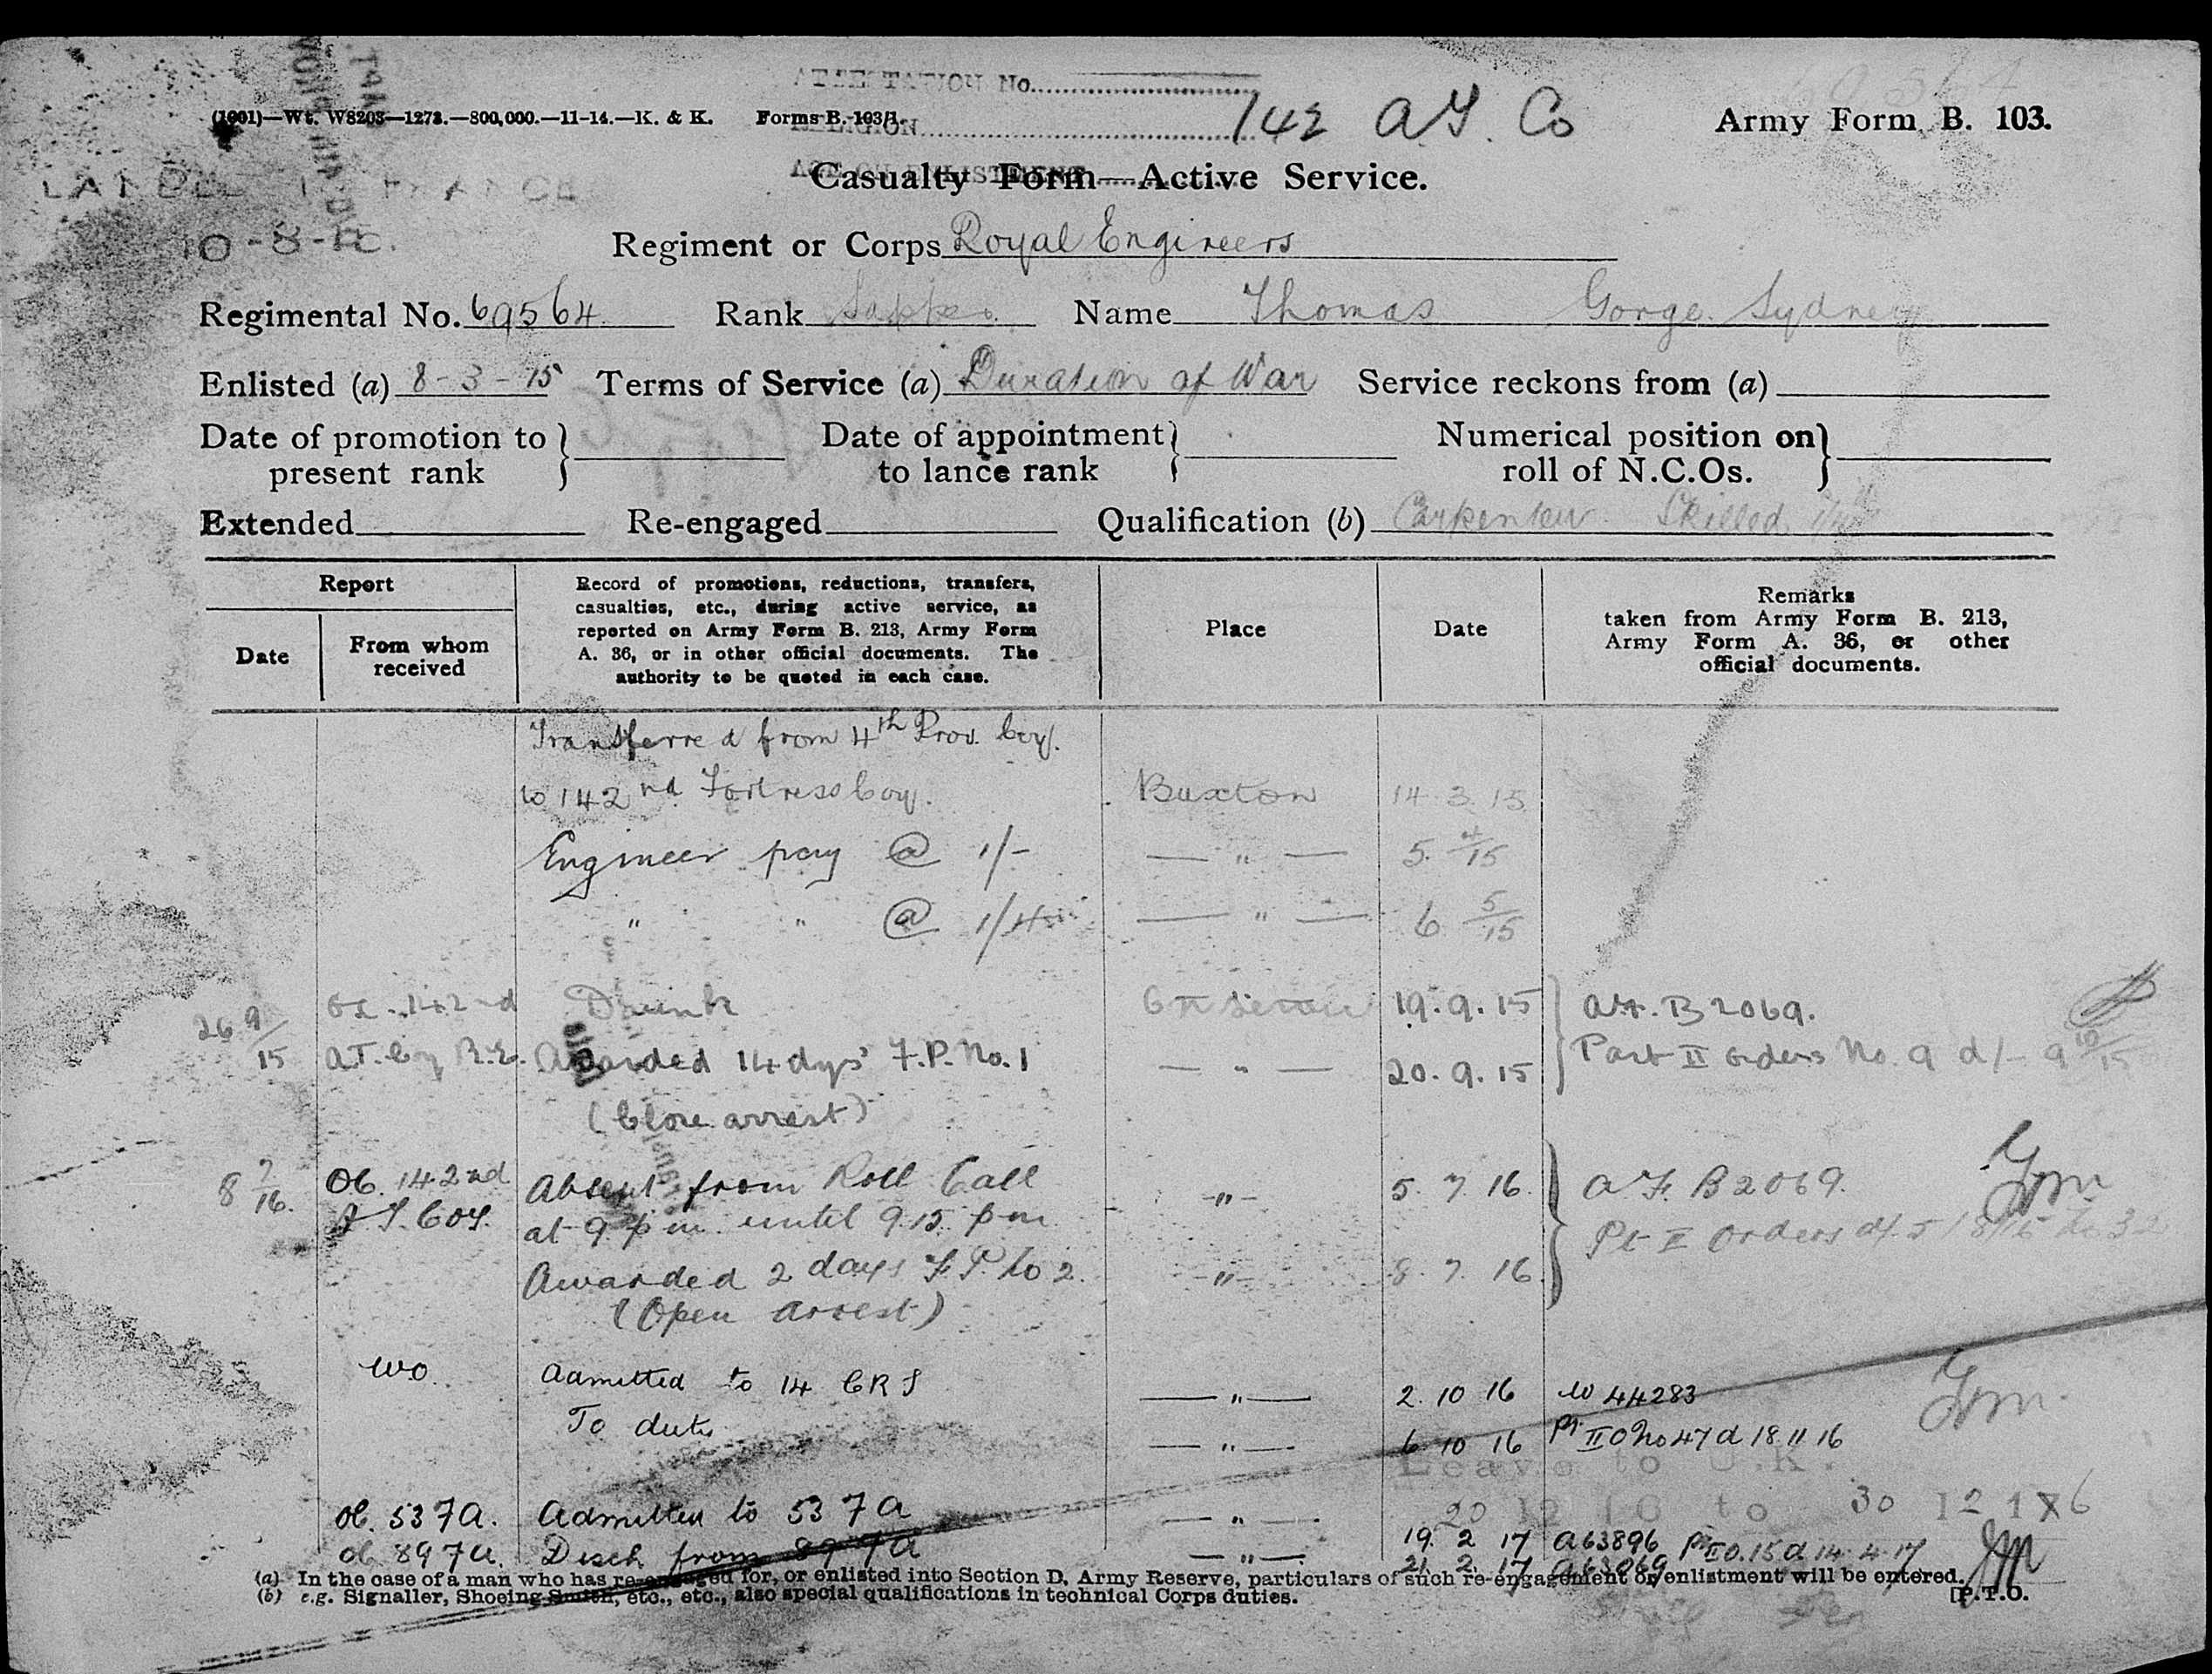 ATTESTATION No.
(1901)—Wt. W8203—1273.—800,000.—11-14.—K. & K. Forms B. 103/1.
142 A.T. Co
Army Form B. 103.
Casualty Form—Active Service.
10-8-15.
Regiment or Corps Royal Engineers
Regimental No. 69564 Rank Sapper Name Thomas Gorge. Sydney
Enlisted (a) 8-3-15 Terms of Service (a) Duration of War Service reckons from (a)
Date of promotion to present rank } Date of appointment to lance rank } Numerical position on roll of N.C.Os. }
Extended Re-engaged Qualification (b) Carpenter Skilled
Report
Date
From whom received
Record of promotions, reductions, transfers,
casualties, etc., during active service, as
reported on Army Form B. 213, Army Form
A. 36, or in other official documents. The
authority to be quoted in each case.
Place
Date
Remarks
taken from Army Form B. 213,
Army Form A. 36, or other
official documents.
Transferred from 4th Prov. Coy.
to 142nd Fortress Coy. Buxton 14.3.15
Engineer pay @ 1/- — " — 5. 4/15
" " @ 1/4 — " — 6 5/15
26 9/15 O.C. 142nd Drunk 19.9.15 A.F. B 2069.
A.T. Coy R.E. Awarded 14 dys' F.P. No. 1 — " — 20.9.15 Part II Orders No. 9 d/- 9 10/15
(Close arrest)
8 7/16. OC. 142nd Absent from Roll Call -"- 5. 7. 16. A.F. B 2069.
A.T. Coy. at 9 pm until 9.15 pm Pt II Orders
Awarded 2 days F.P. No 2. -"- 8. 7. 16
(Open arrest)
WO. Admitted to 14 CRS — " — 2. 10 16 W 44283
To duty — " — 6 10 16 Pt II O No 47 d 18 11 16
Leave to U.K.
20 12 16 to 30 12 16
OC. 53 7A. Admitted to 53 7A — " — 19. 2 17 A63896 Pt II O.15 d 14.4.17
OC 89 7A. Disch from 89 7A — " — 21. 2. 17 A63069
(a) In the case of a man who has re-engaged for, or enlisted into Section D, Army Reserve, particulars of such re-engagement or enlistment will be entered.
(b) e.g. Signaller, Shoeing-Smith, etc., etc., also special qualifications in technical Corps duties.
[P.T.O.